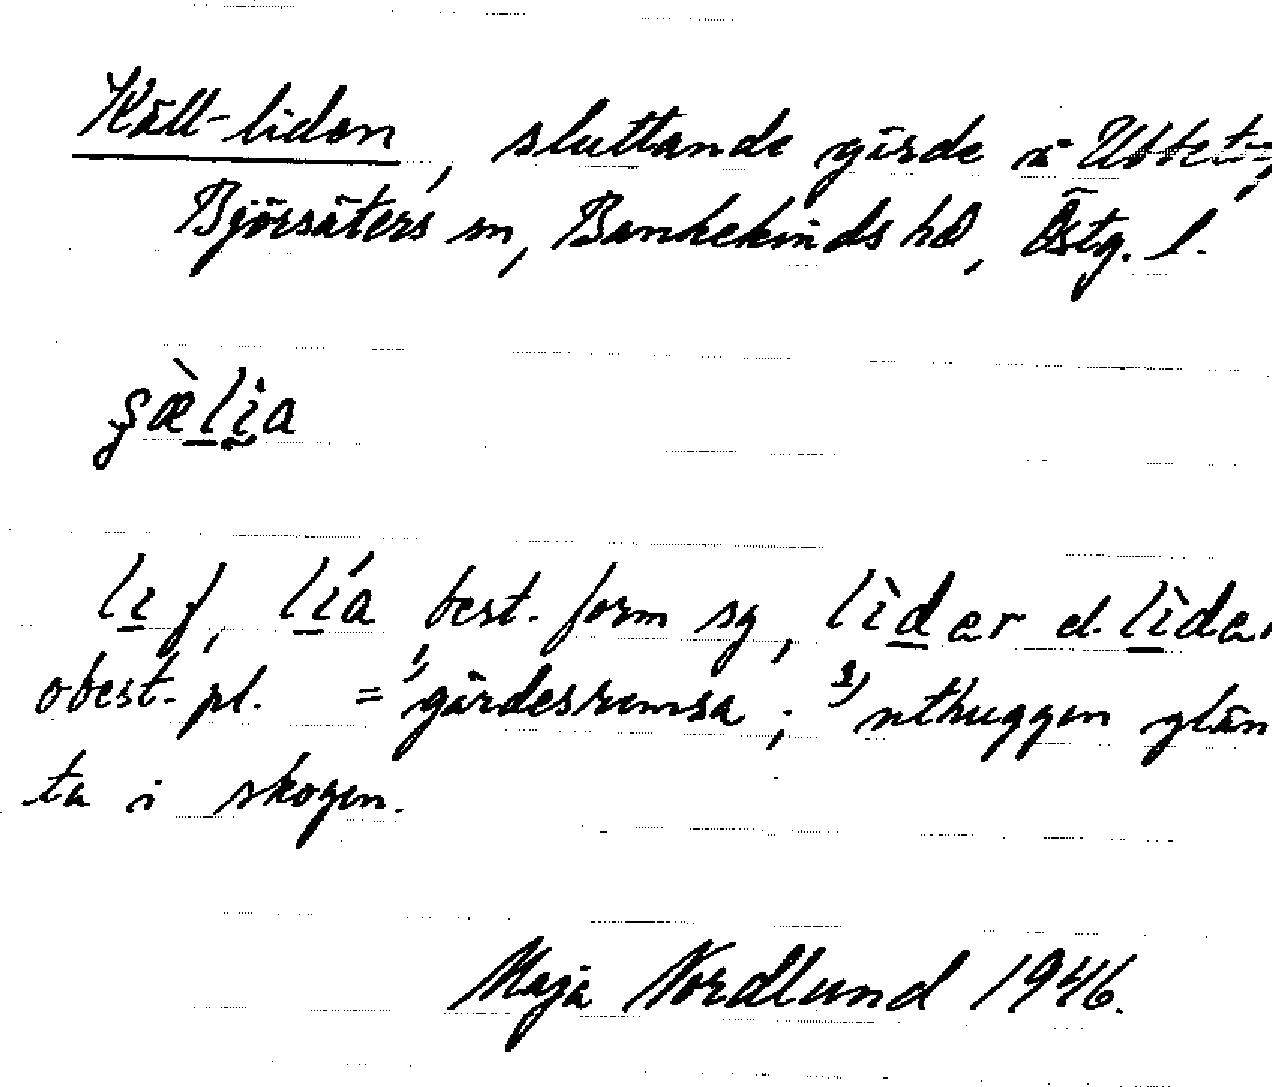 Käll-lidan, sluttande gärde å Ubbetorp,
Björsäters sn, Bankekinds hd, Östg. l.
li f, lía, best. form sg, lìdær el. lìdær
obest. pl. = ¹⁾gärdesremsa; ²⁾uthuggen glän
ta i skogen.
Maja Nordlund 1946.